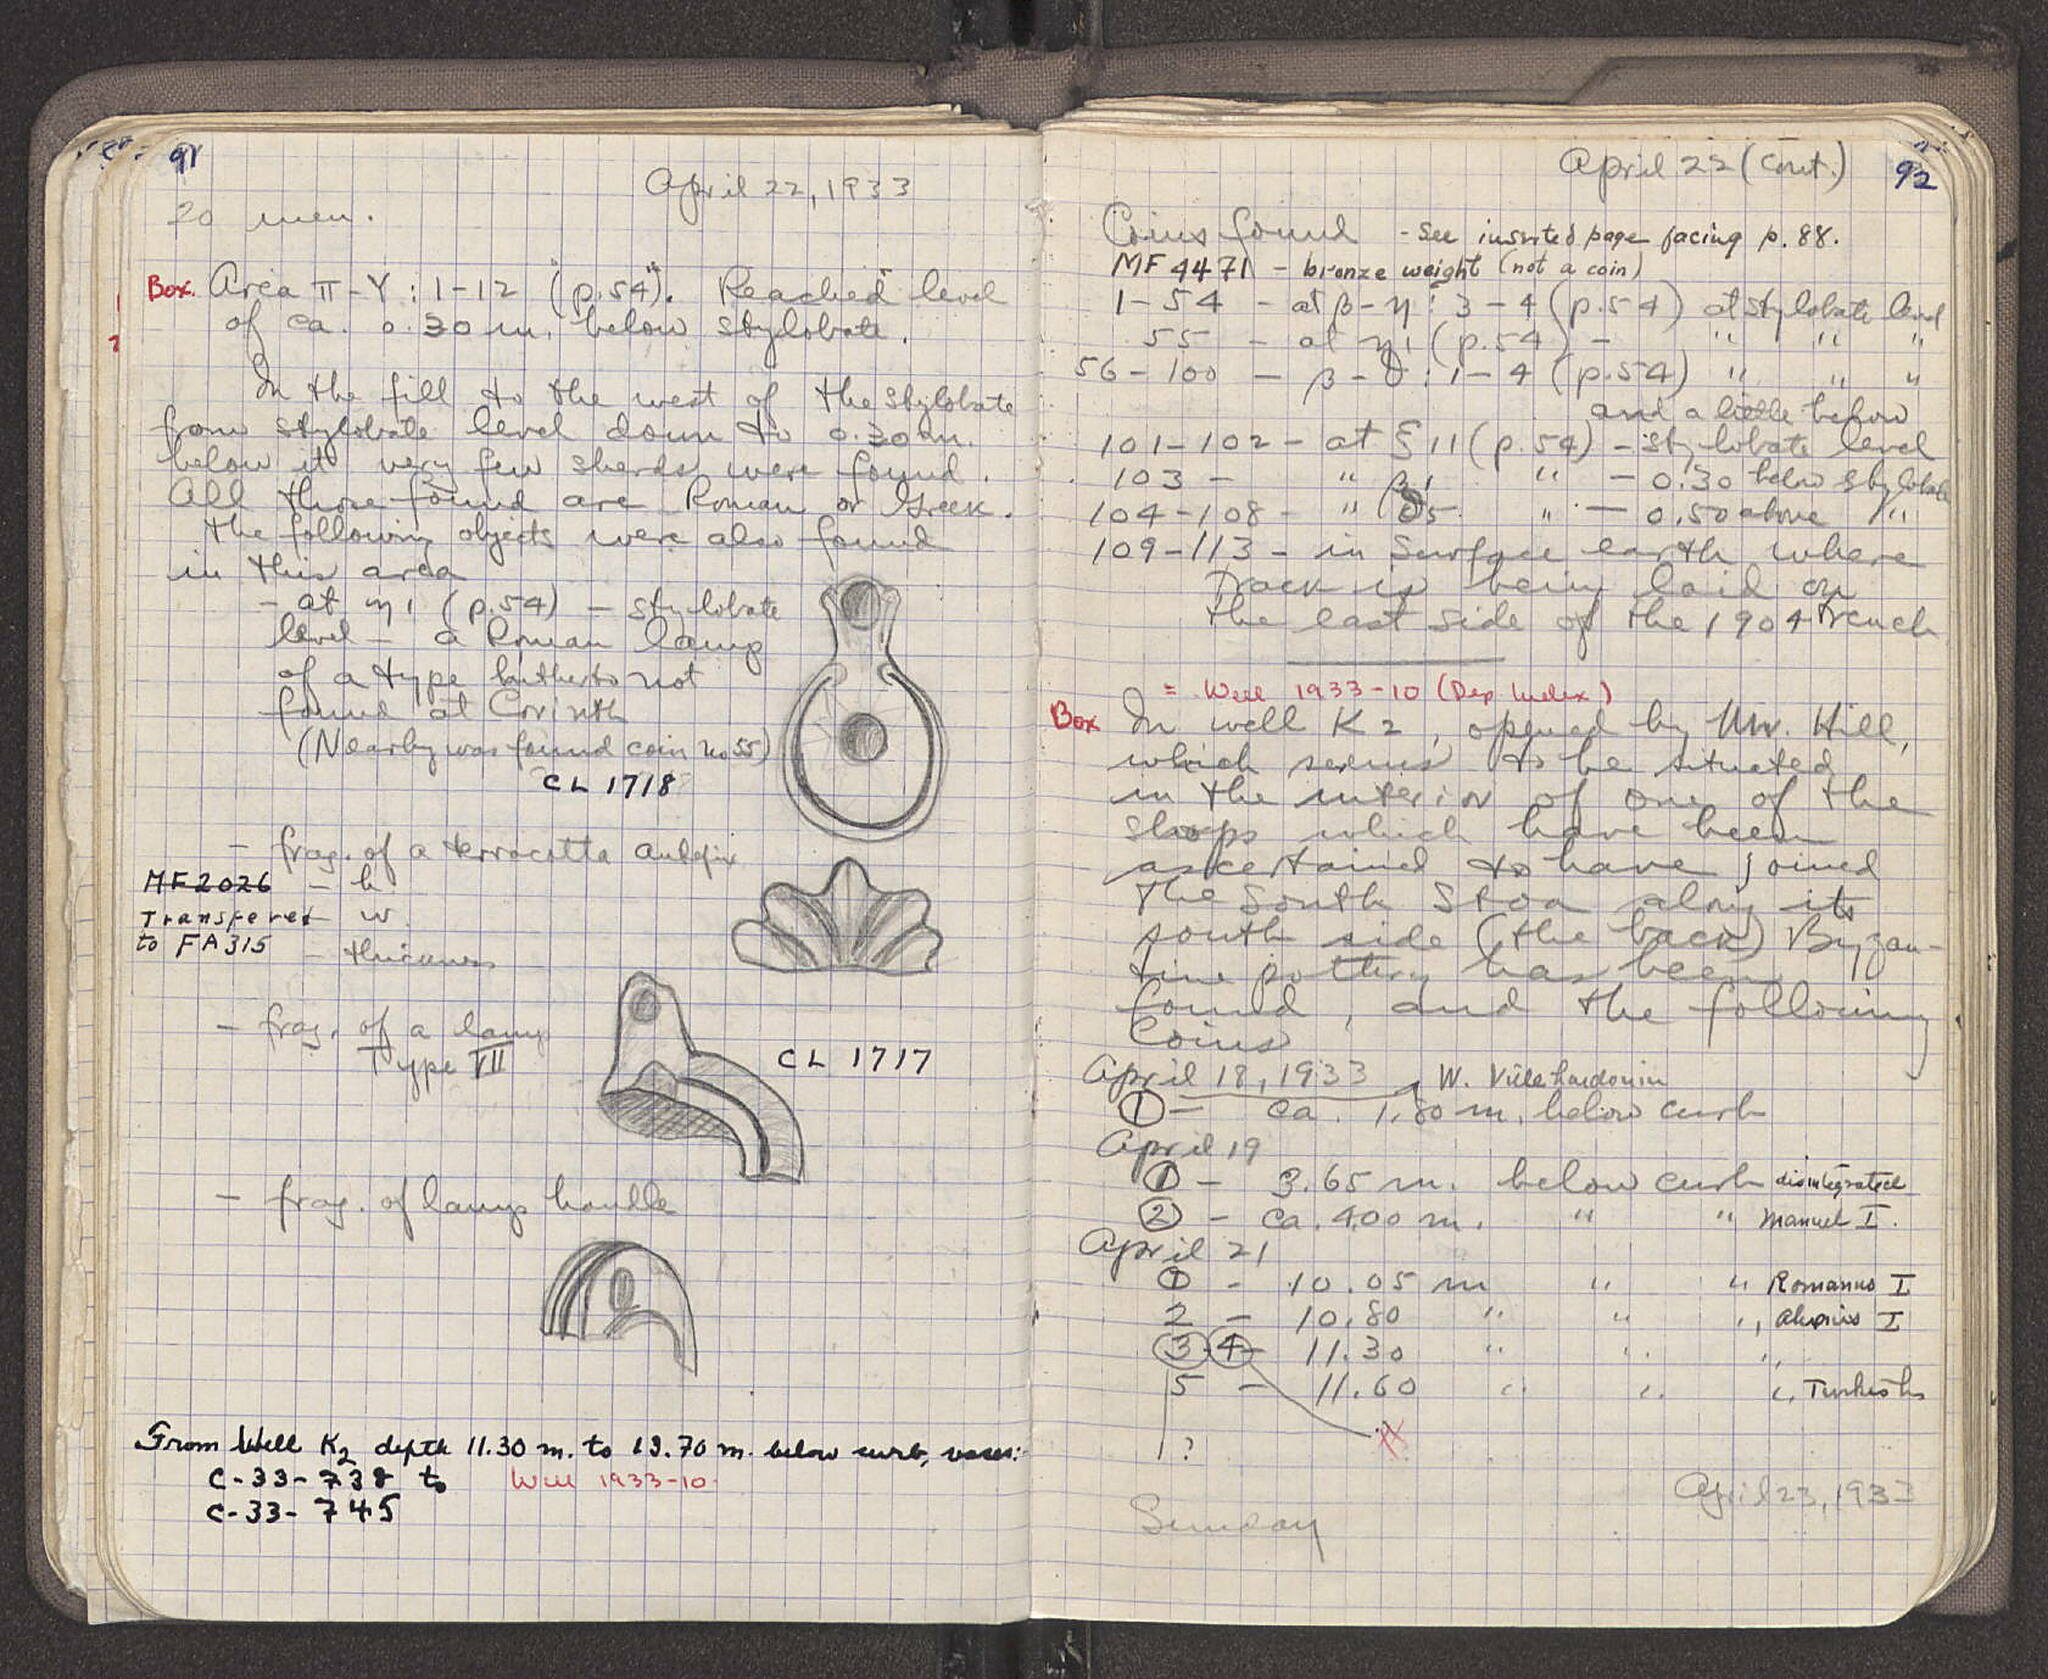 91
April 22, 1933
20 men.
Box. Area π-Y : 1-12 (p.54). Reached level
of ca. 0.30 m. below stylobate.
In the fill to the west of the stylobate
from stylobate level down to 0.30 m.
below it very few sherds were found.
All those found are Roman or Greek.
The following objects were also found
in this area
- at η1 (p.54) - stylobate
level - a Roman lamp
of a type hitherto not
found at Corinth
(Nearby was found coin no 55)
CL 1718
- frag. of a terracotta antefix
MF 2026 - h
Transfered - w.
to FA 315 - thickness
- frag. of a lamp
Type VII
CL 1717
- frag. of lamp handle
From Well K2 depth 11.30 m. to 13.70 m. below curb, vases:
C-33-738 to Well 1933-10
C-33-745
April 22 (cont.) 92
Coins found - see inserted page facing p. 88.
MF 4471 - bronze weight (not a coin)
1-54 - at β-η : 3-4 (p.54) at stylobate level
55 - at η1 (p.54) - " " "
56-100 - β-δ : 1-4 (p.54) " " "
and a little below
101-102 - at ξ 11 (p.54) - stylobate level
103 - " β1 " - 0.30 below stylobate
104-108 - " δ5 " - 0.50 above "
109-113 - in surface earth where
track is being laid on
the east side of the 1904 trench
= Well 1933-10 (Dep. Index)
Box In well K2, opened by Mr. Hill,
which seems to be situated
in the interior of one of the
shops which have been
ascertained to have joined
the South Stoa along its
south side (the back) Byzan-
tine pottery has been
found, and the following
coins
April 18, 1933 W. Villehardouin
1 - ca. 1.80 m. below curb
April 19
1 - 3.65 m. below curb disintegrated
2 - ca. 4.00 m. " " Manuel I.
April 21
1 - 10.05 m " " Romanus I
2 - 10.80 " " " Alexius I
3 4 - 11.30 " " "
5 - 11.60 " " " Turkish
1?
April 23, 1933
Sunday